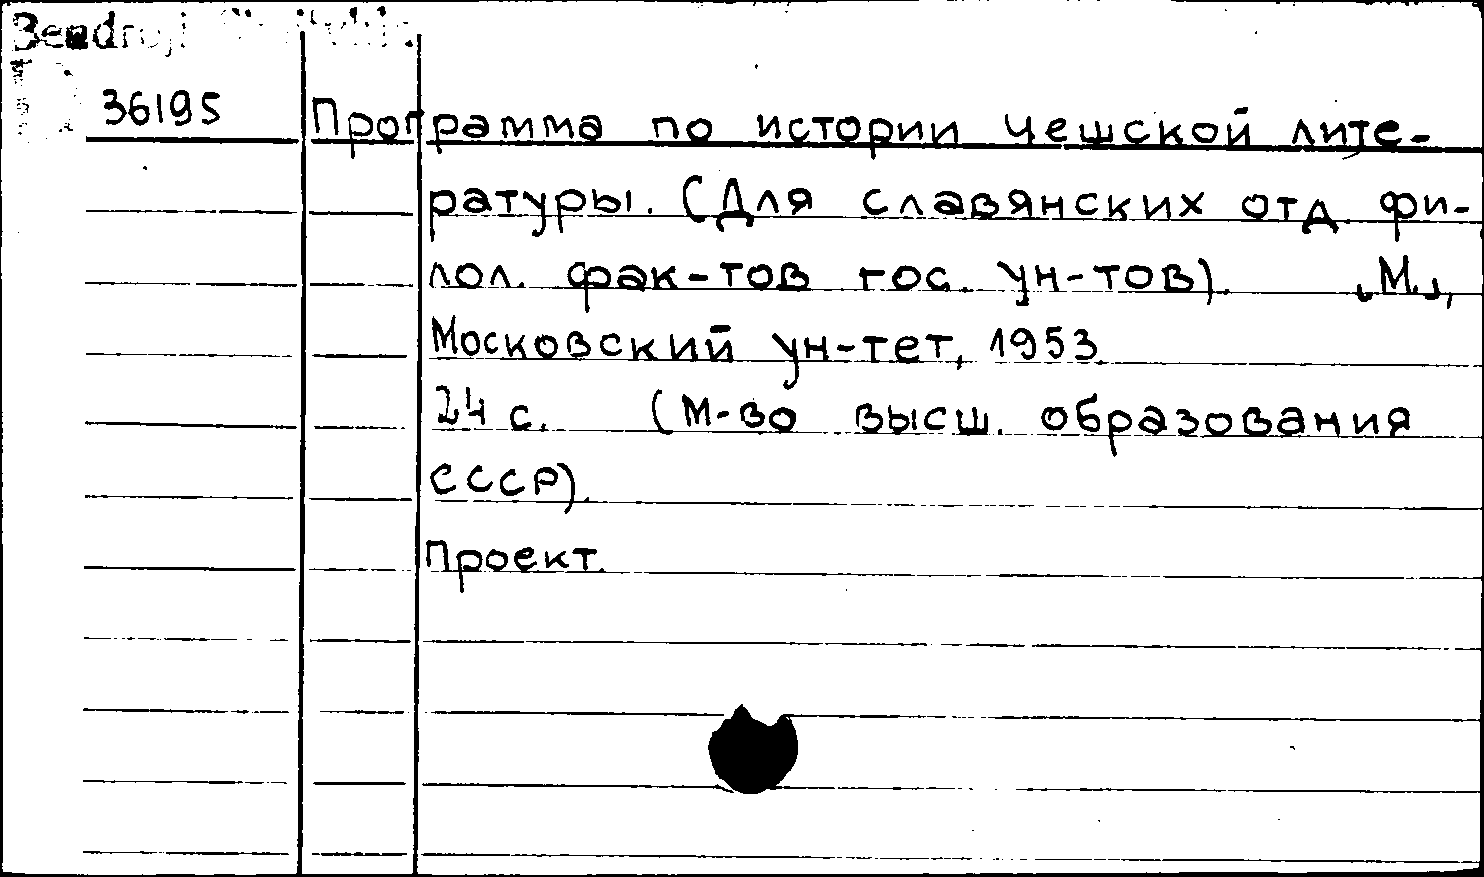 Bendroji
36195 Программа по истории чешской лите-
ратуры. (Для славянских отд. фи-
лол. фак-тов гос. ун-тов). М.,
Московский ун-тет, 1953.
24 с. (М-во высш. образования
СССР).
Проект.